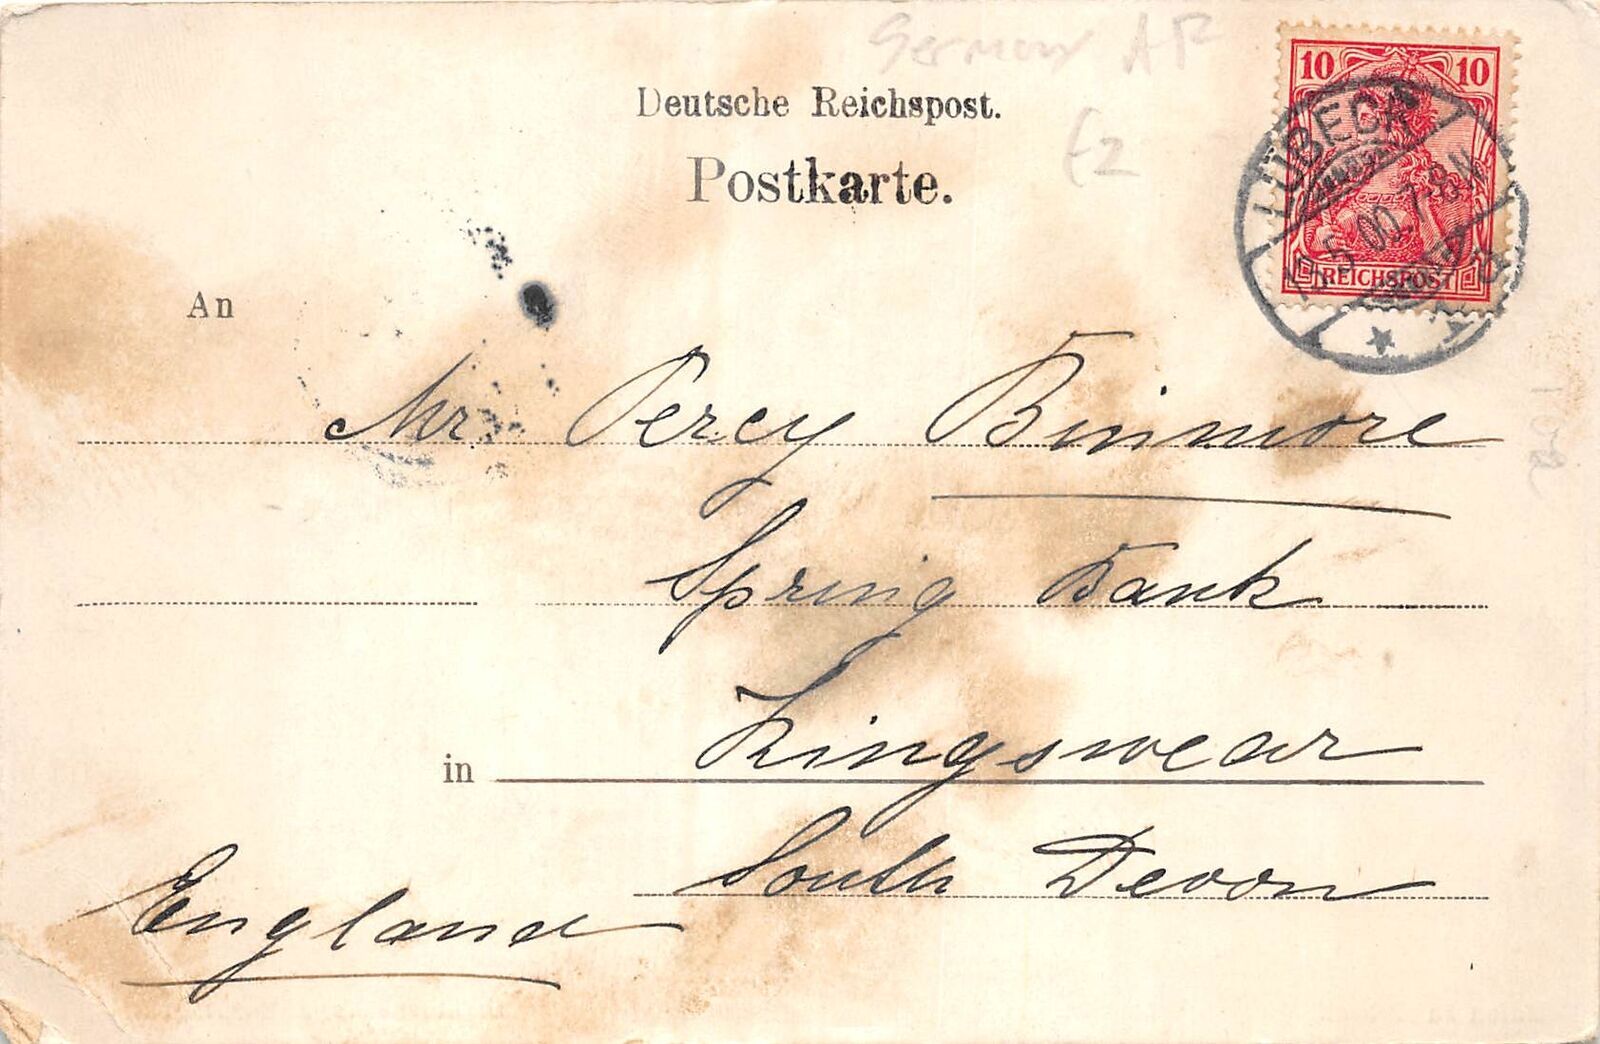 Germany AF
Deutsche Reichspost.
Postkarte.
£2
10 10
REICHSPOST
LÜBECK
5.00.7-8N
An
Mr Percy Binmore
Spring Bank
in Kingswear
South Devon
England